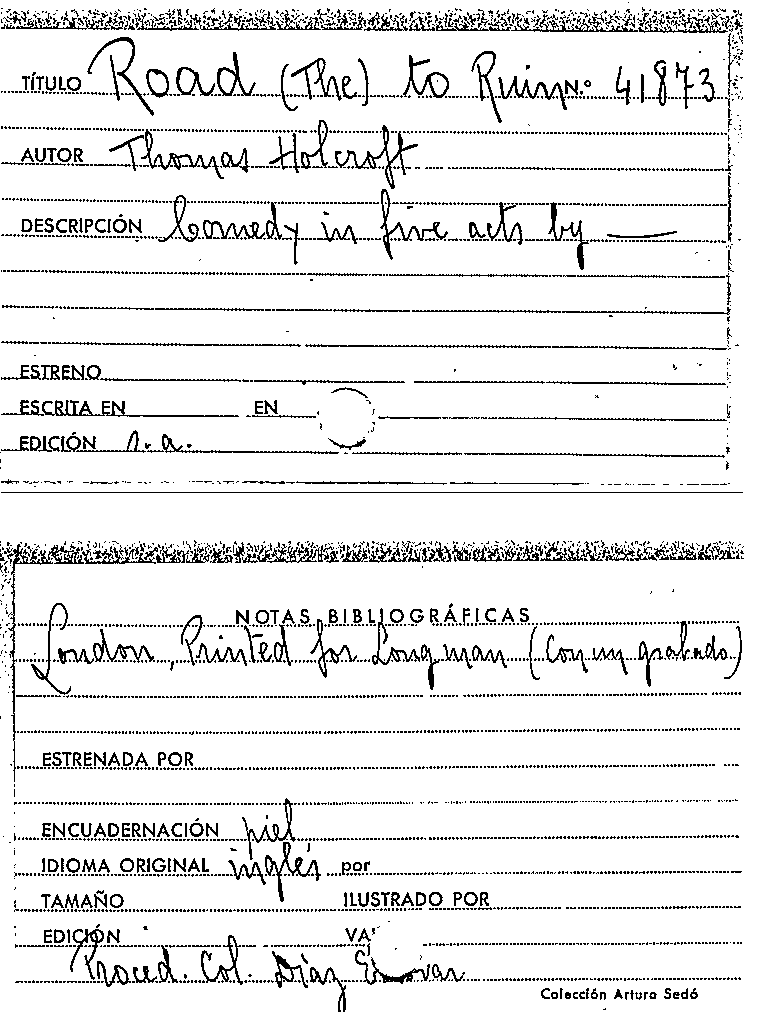 TÍTULO Road (The) to Ruin N.º 41873
AUTOR Thomas Holcroft
DESCRIPCIÓN Comedy in five acts by —
ESTRENO
ESCRITA EN EN
EDICIÓN s.a.
NOTAS BIBLIOGRÁFICAS
London, Printed for Longman (Con un grabado)
ESTRENADA POR
ENCUADERNACIÓN piel
IDIOMA ORIGINAL inglés por
TAMAÑO ILUSTRADO POR
EDICIÓN VA
Proced. Col. Díaz
Colección Arturo Sedó